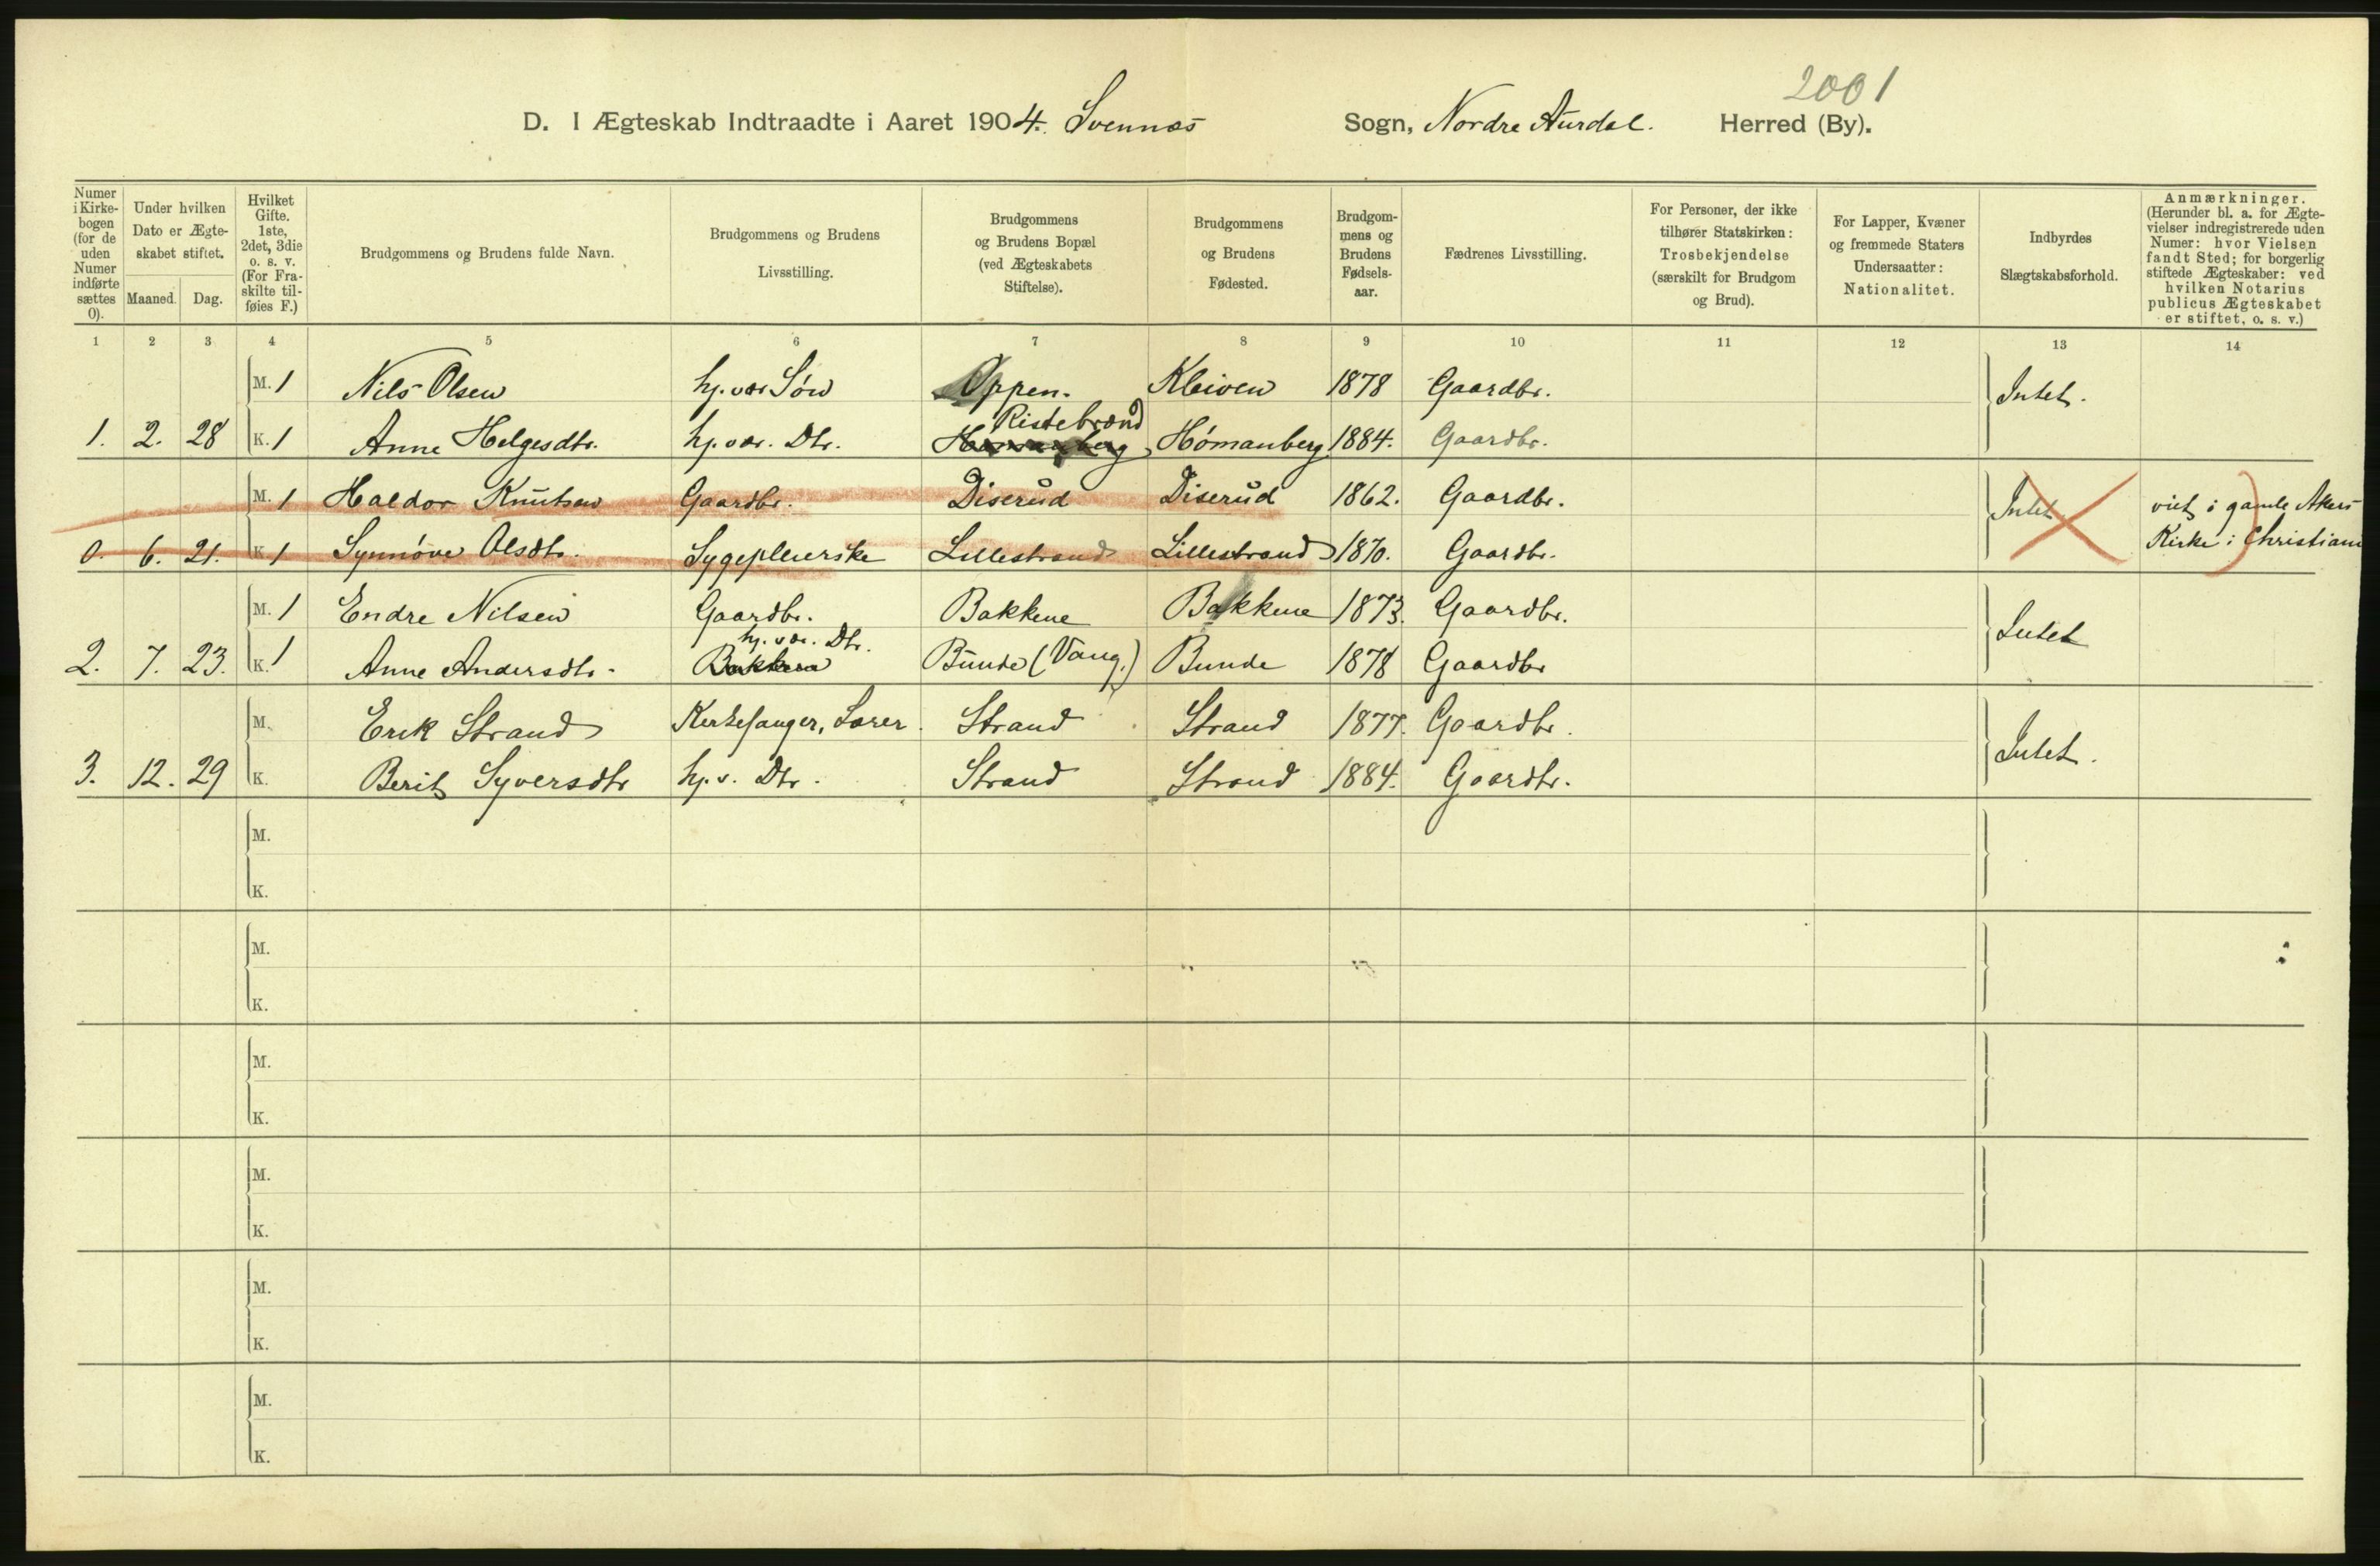 2001
D. I Ægteskab Indtraadte i Aaret 1904. Svennæs Sogn, Nordre Aurdal. Herred (By).
Numer i Kirke-bogen (for de uden Numer indførte sættes 0).
Under hvilken Dato er Ægte-skabet stiftet.
Maaned. Dag.
Hvilket Gifte. 1ste, 2det, 3die o. s. v. (For Fra-skilte til-føies F.)
Brudgommens og Brudens fulde Navn.
Brudgommens og Brudens Livsstilling.
Brudgommens og Brudens Bopæl (ved Ægteskabets Stiftelse).
Brudgommens og Brudens Fødested.
Brudgom-mens og Brudens Fødsels-aar.
Fædrenes Livsstilling.
For Personer, der ikke tilhører Statskirken: Trosbekjendelse (særskilt for Brudgom og Brud).
For Lapper, Kvæner og fremmede Staters Undersaatter: Nationalitet.
Indbyrdes Slægtskabsforhold.
Anmærkninger. (Herunder bl. a. for Ægte-vielser indregistrerede uden Numer: hvor Vielsen fandt Sted; for borgerlig stiftede Ægteskaber: ved hvilken Notarius publicus Ægteskabet er stiftet, o. s. v.)
1 2 3 4 5 6 7 8 9 10 11 12 13 14
M. 1 Nils Olsen hj. vær Søn Oppen. Kleiven 1878 Gaardbr. Intet.
Ristebrænd
1. 2. 28 K. 1 Anne Helgesdtr. hj. vær. Dtr. Hømanberg Hømanberg 1884. Gaardbr.
M. 1 Haldor Knutsen Gaardbr. Diserud Diserud 1862. Gaardbr. Intet viet i gamle Akers
0. 6. 21. K. 1 Synnøve Olsdtr. Sygepleierske Lillestrand Lillestrand 1870. Gaardbr. Kirke i Christiani
M. 1 Endre Nilsen Gaardbr. Bakkene Bakkene 1873. Gaardbr. Intet
hj. vær. Dtr.
2. 7. 23. K. 1 Anne Andersdtr. Bakkene Bunde (Vang.) Bunde 1878 Gaardbr
M. Erik Strand Kirkesanger, Lærer. Strand Strand 1877. Gaardbr. Intet.
3. 12. 29 K. Berit Syversdtr hj. v. Dtr. Strand Strand 1884. Gaardbr.
M.
K.
M.
K.
M.
K.
M.
K.
M.
K.
M.
K.